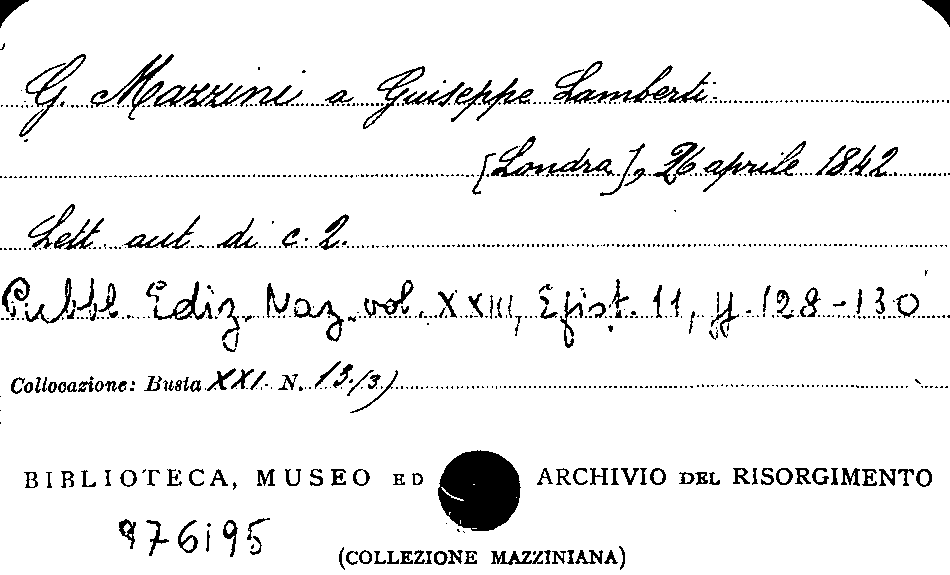 G. Mazzini a Giuseppe Lamberti.
[Londra], 26 aprile 1842
Lett. aut. di c. 2.
Pubbl. Ediz. Naz. vol. XXIII, Epist. 11, pp. 128-130
Collocazione: Busta XXI N. 13/3)
BIBLIOTECA, MUSEO ED ARCHIVIO DEL RISORGIMENTO
976195
(COLLEZIONE MAZZINIANA)